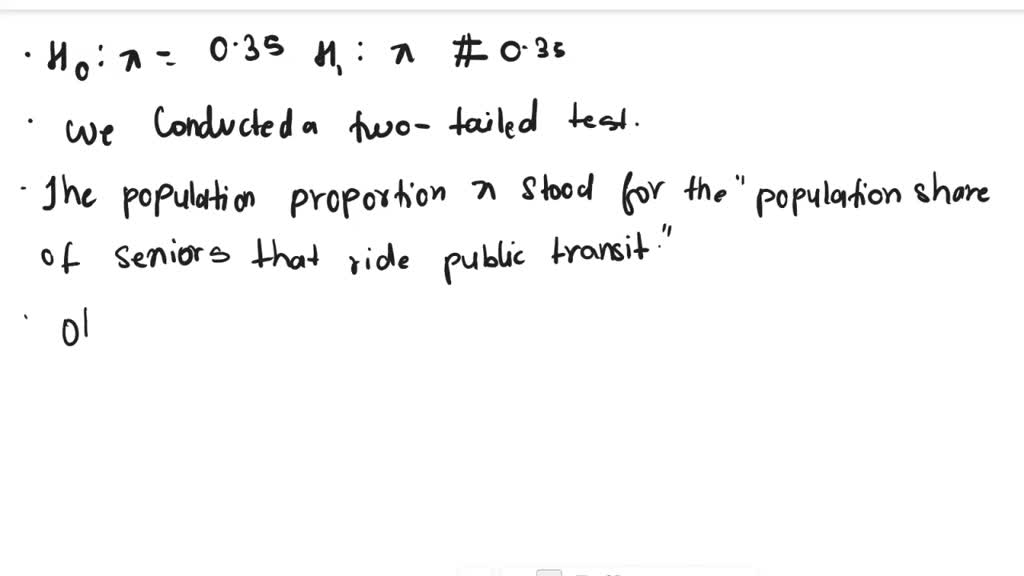 · H₀ : π = 0.35 H₁ : π ≠ 0.35
· We Conducted a two-tailed test.
· The population proportion π stood for the "population share
of seniors that ride public transit."
· ol